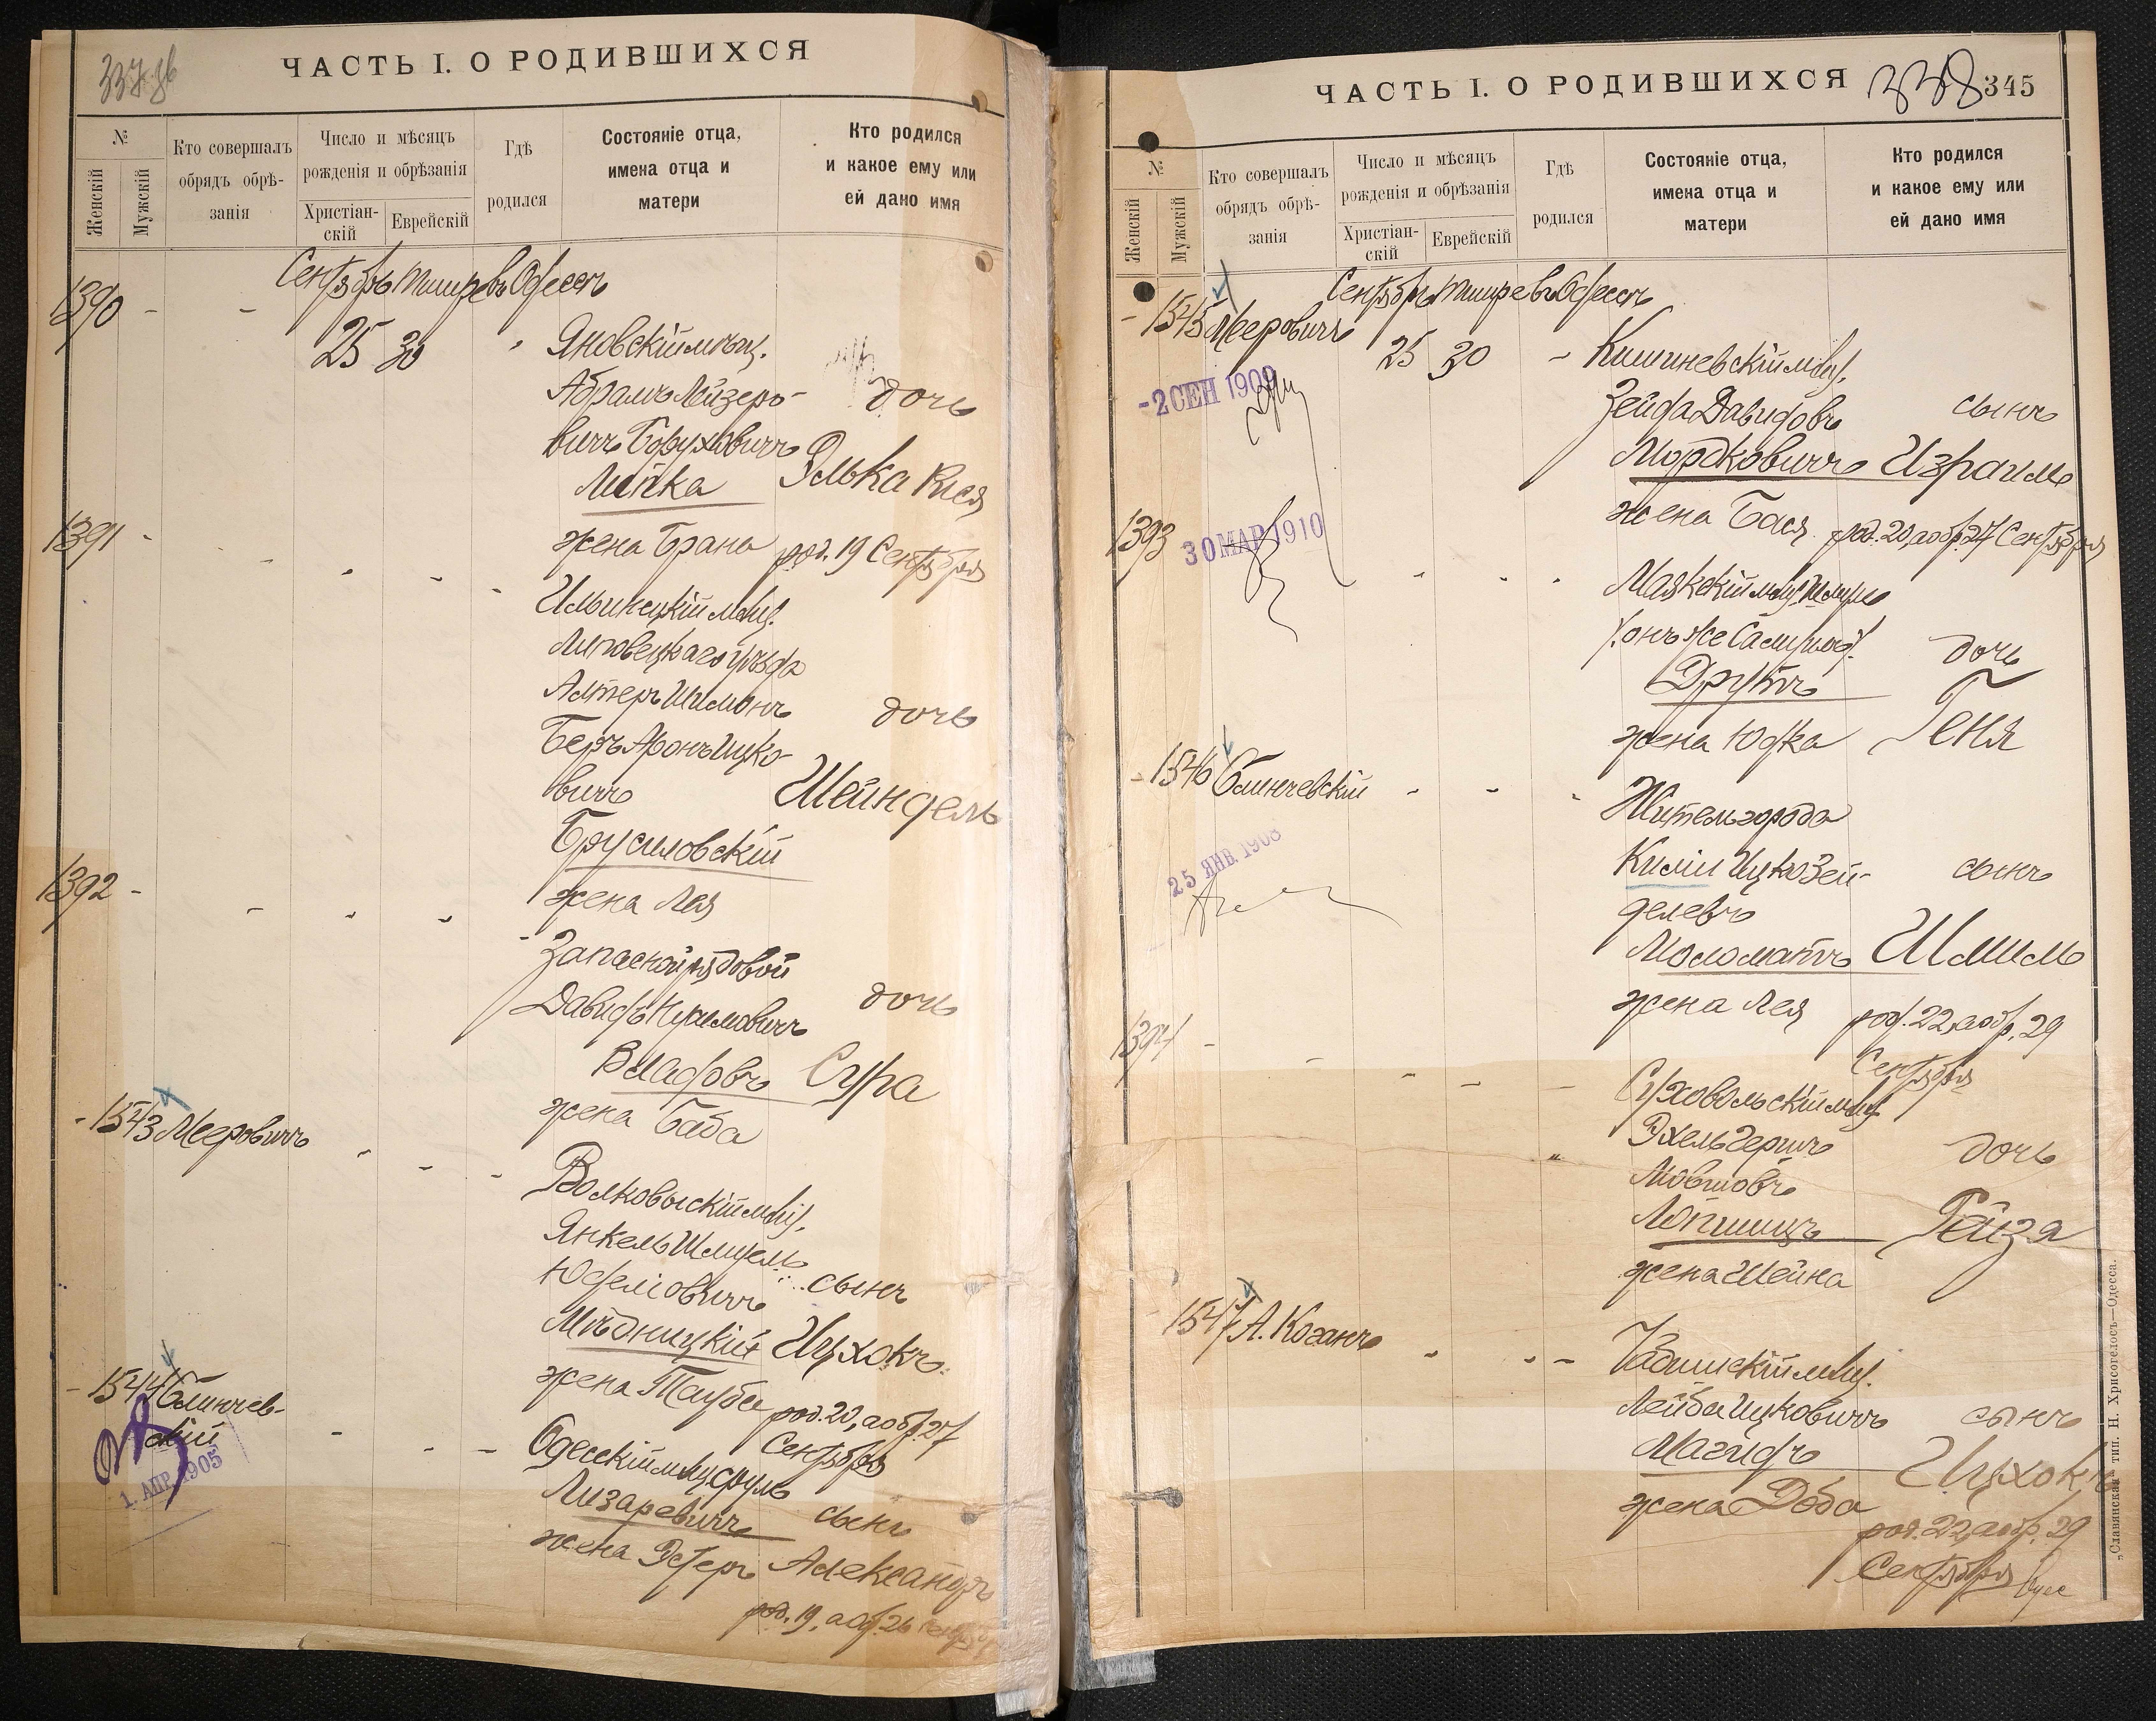 337 об
ЧАСТЬ I. О РОДИВШИХСЯ
№
Женскій
Мужскій
Кто совершалъ
обрядъ обрѣ-
занія
Число и мѣсяцъ
рожденія и обрѣзанія
Христіан-
скій
Еврейскій
Гдѣ
родился
Состояніе отца,
имена отца и
матери
Кто родился
и какое ему или
ей дано имя
Сентябрь Тишре въ Одессѣ
1390 - -
25 30 " Яновскій мѣщ.
Абрамъ Лейзеро-
дочь
вичъ Боруховичъ
Лейпка Элька Рися
жена Брана род. 19 Сентября
1391 - - - - -
Ильинецкій мѣщ.
Липовецкаго уѣзда
Алтеръ Шимонъ
дочь
Беръ Аронъ Ицко-
вичъ Шейндель
Брусиловскій
жена Лея
1392 - - - - -
Запасной рядовой
Давидъ Нухимовичъ
дочь
Виадовъ Сура
жена Баба
- 1543 Мееровичъ - - -
Волковыскій мѣщ.
Янкель Шмуель
Юделіовичъ сынъ
Мѣдницкій Ицхокъ
жена Таубе род. 20, а обр. 27
Сентября
- 1544 Блинчев-
скій - - -
1. АПР. 1905
Одесскій мѣщ. Сруль
Лизаревичъ сынъ
жена Эстеръ Александръ
род. 19, а обр. 26 Сентября
ЧАСТЬ I. О РОДИВШИХСЯ 338 345
№
Женскій
Мужскій
Кто совершалъ
обрядъ обрѣ-
занія
Число и мѣсяцъ
рожденія и обрѣзанія
Христіан-
скій
Еврейскій
Гдѣ
родился
Состояніе отца,
имена отца и
матери
Кто родился
и какое ему или
ей дано имя
Сентябрь Тишре въ Одессѣ
- 1545 Мееровичъ
25 30 - Кишиневскій мѣщ.
-2 СЕН 1909
Зейда Давидовъ сынъ
Мордковичъ Израиль
жена Бася род. 20, а обр. 27 Сентября
1393
30 МАР 1910
- - -
Маякскій мѣщ. Шмуль
(онъ же Самуилъ)
дочь
Друкъ
жена Юдка Геня
- 1546 Блинчевскій - - -
Житель города
Киліи Ицко Зей-
сынъ
25 ЯНВ. 1908
делевъ
Моломатъ Шмиль
жена Лея род. 22, а обр. 29
Сентября
1394 - - - - -
Суховольскій мѣщ.
Эхель Гершъ
дочь
Мовшовъ
Лопшицъ Рейза
жена Шейна
- 1547 А. Коганъ - - -
Лейба Ицковичъ сынъ
Магидъ Ицхокъ
жена Доба
род. 22, а обр. 29
Сентября
„Славянская" тип. Н. Хрисогелосъ—Одесса.